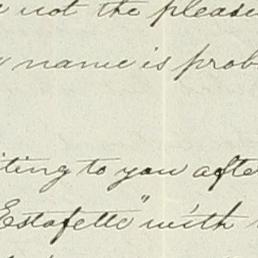 not the pleasu
name is prob
iting to you afte
Estafette" with